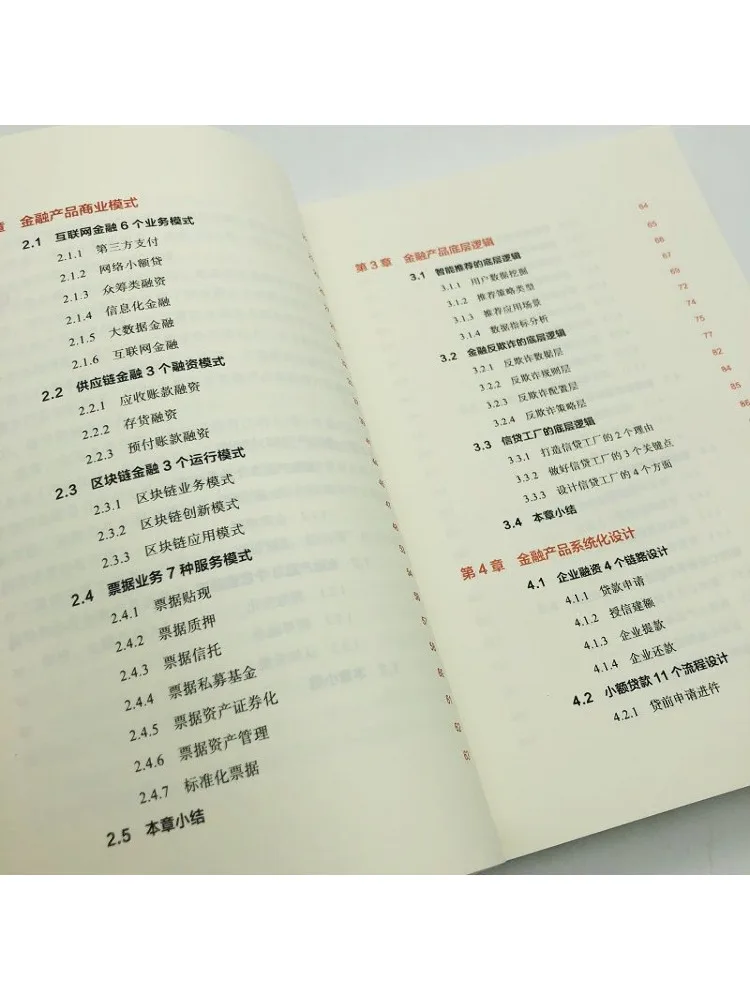 章 金融产品商业模式
2.1 互联网金融6个业务模式
2.1.1 第三方支付
2.1.2 网络小额贷
2.1.3 众筹类融资
2.1.4 信息化金融
2.1.5 大数据金融
2.1.6 互联网金融
2.2 供应链金融3个融资模式
2.2.1 应收账款融资
2.2.2 存货融资
2.2.3 预付账款融资
2.3 区块链金融3个运行模式
2.3.1 区块链业务模式
2.3.2 区块链创新模式
2.3.3 区块链应用模式
2.4 票据业务7种服务模式
2.4.1 票据贴现
2.4.2 票据质押
2.4.3 票据信托
2.4.4 票据私募基金
2.4.5 票据资产证券化
2.4.6 票据资产管理
2.4.7 标准化票据
2.5 本章小结
第3章 金融产品底层逻辑 64
3.1 智能推荐的底层逻辑 65
3.1.1 用户数据挖掘 66
3.1.2 推荐策略类型 67
3.1.3 推荐应用场景 69
3.1.4 数据指标分析 72
3.2 金融反欺诈的底层逻辑 74
3.2.1 反欺诈数据层 75
3.2.2 反欺诈规则层 77
3.2.3 反欺诈配置层 82
3.2.4 反欺诈策略层 84
3.3 信贷工厂的底层逻辑 85
3.3.1 打造信贷工厂的2个理由 86
3.3.2 做好信贷工厂的3个关键点
3.3.3 设计信贷工厂的4个方面
3.4 本章小结
第4章 金融产品系统化设计
4.1 企业融资4个链路设计
4.1.1 贷款申请
4.1.2 授信建额
4.1.3 企业提款
4.1.4 企业还款
4.2 小额贷款11个流程设计
4.2.1 贷前申请进件